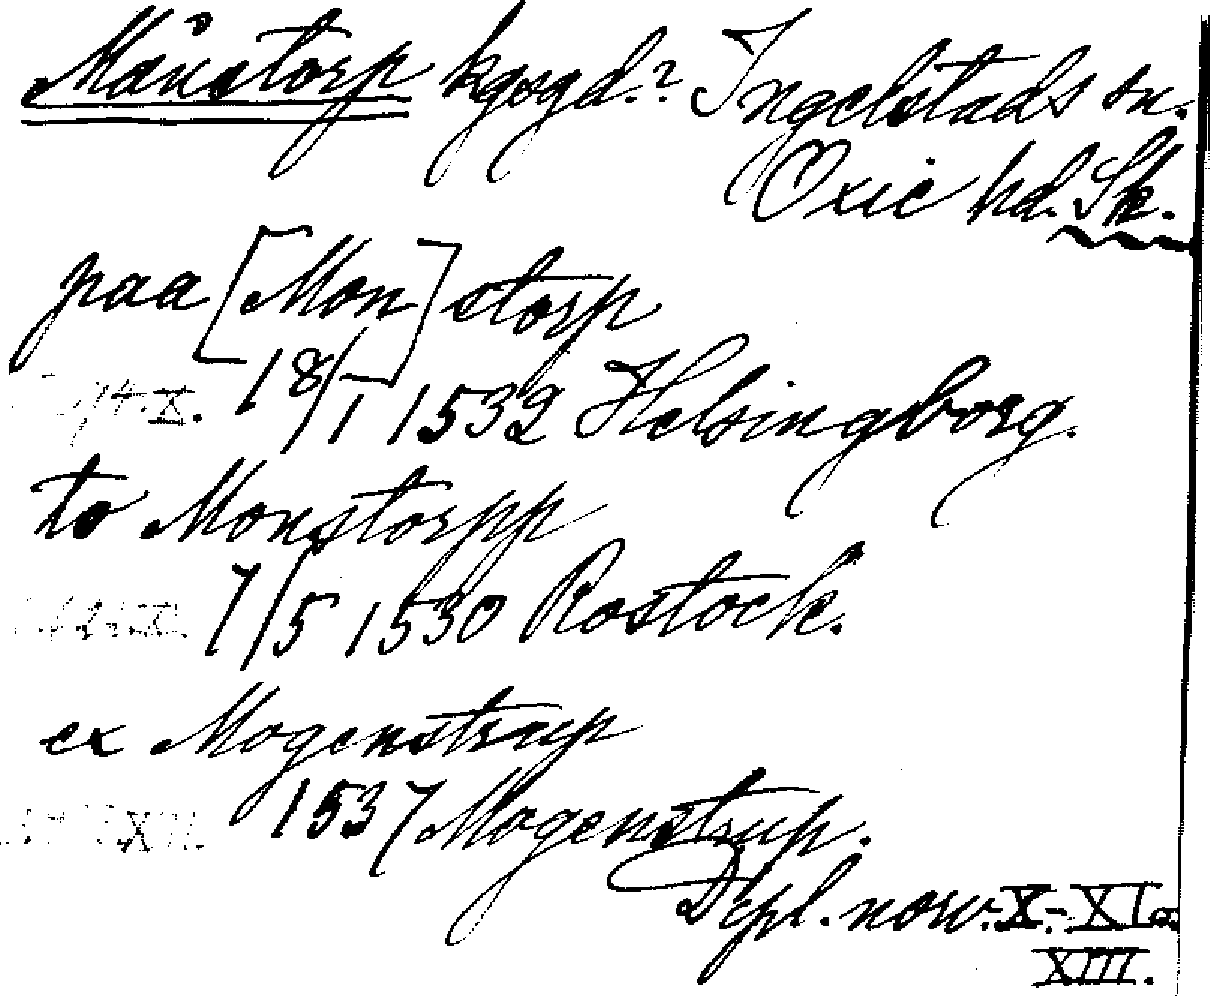 Månstorp kgsgd.? Ingelstads sn.
Oxie hd. Sk.
paa [Mon]storp
X. 18/1 1532 Helsingborg.
to Monstorpp
7/5 1530 Rostock.
ex Mogenstrup
XII. 1537 Mogenstrup.
Dipl. norv. X.-XI o.
XIII.